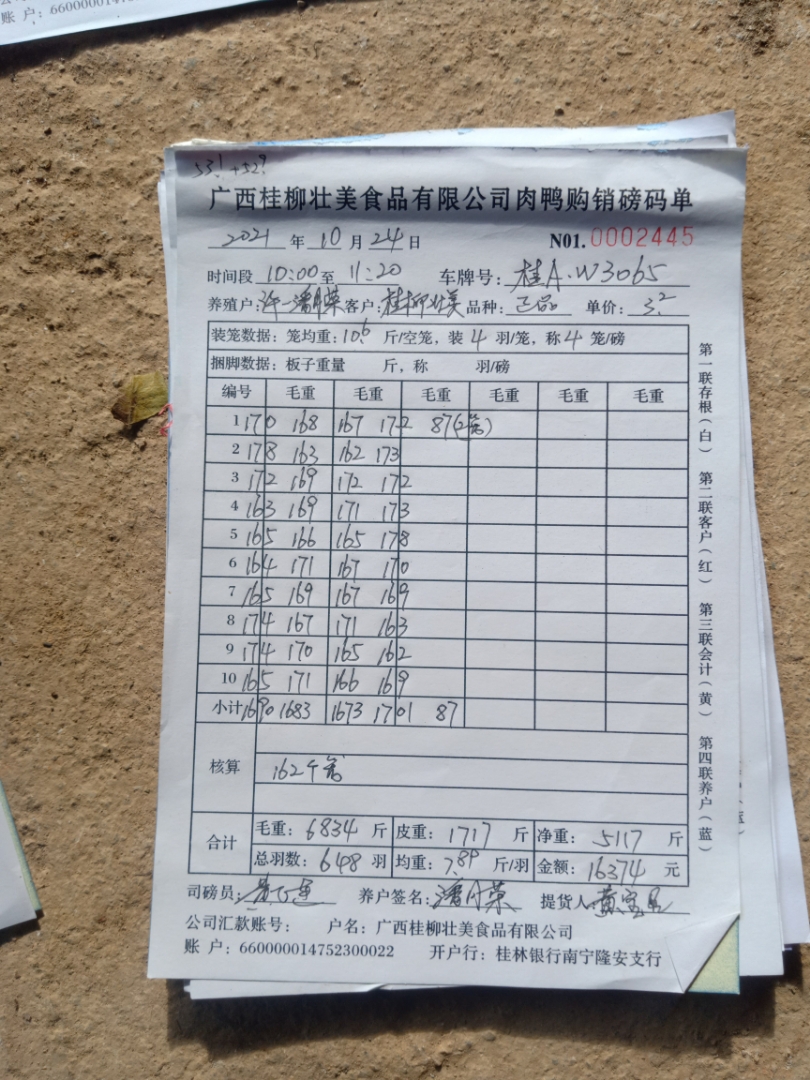 账 户: 66000001475
53.1 +52.9
广西桂柳壮美食品有限公司肉鸭购销磅码单
2021 年 10 月 24 日 N01.0002445
时间段 10:00 至 11:20 车牌号: 桂A·W3065
养殖户: 潘月荣 客户: 桂柳壮美 品种: 正品 单价: 3.2
装笼数据: 笼均重: 10.6 斤/空笼, 装 4 羽/笼, 称 4 笼/磅
捆脚数据: 板子重量 斤, 称 羽/磅
编号 毛重 毛重 毛重 毛重 毛重 毛重
1 170 168 167 172 87(2笼)
2 178 163 162 173
3 172 169 172 172
4 163 169 171 173
5 165 166 165 178
6 164 171 167 170
7 165 169 167 169
8 174 167 171 163
9 174 170 165 162
10 165 171 166 169
小计 1690 1683 1673 1701 87
核算 162个笼
合计 毛重: 6834 斤 皮重: 1717 斤 净重: 5117 斤
总羽数: 648 羽 均重: 7.89 斤/羽 金额: 16374 元
司磅员: 养户签名: 潘月荣 提货人
公司汇款账号: 户名: 广西桂柳壮美食品有限公司
账 户: 660000014752300022 开户行: 桂林银行南宁隆安支行
第一联存根(白) 第二联客户(红) 第三联会计(黄) 第四联养户(蓝)